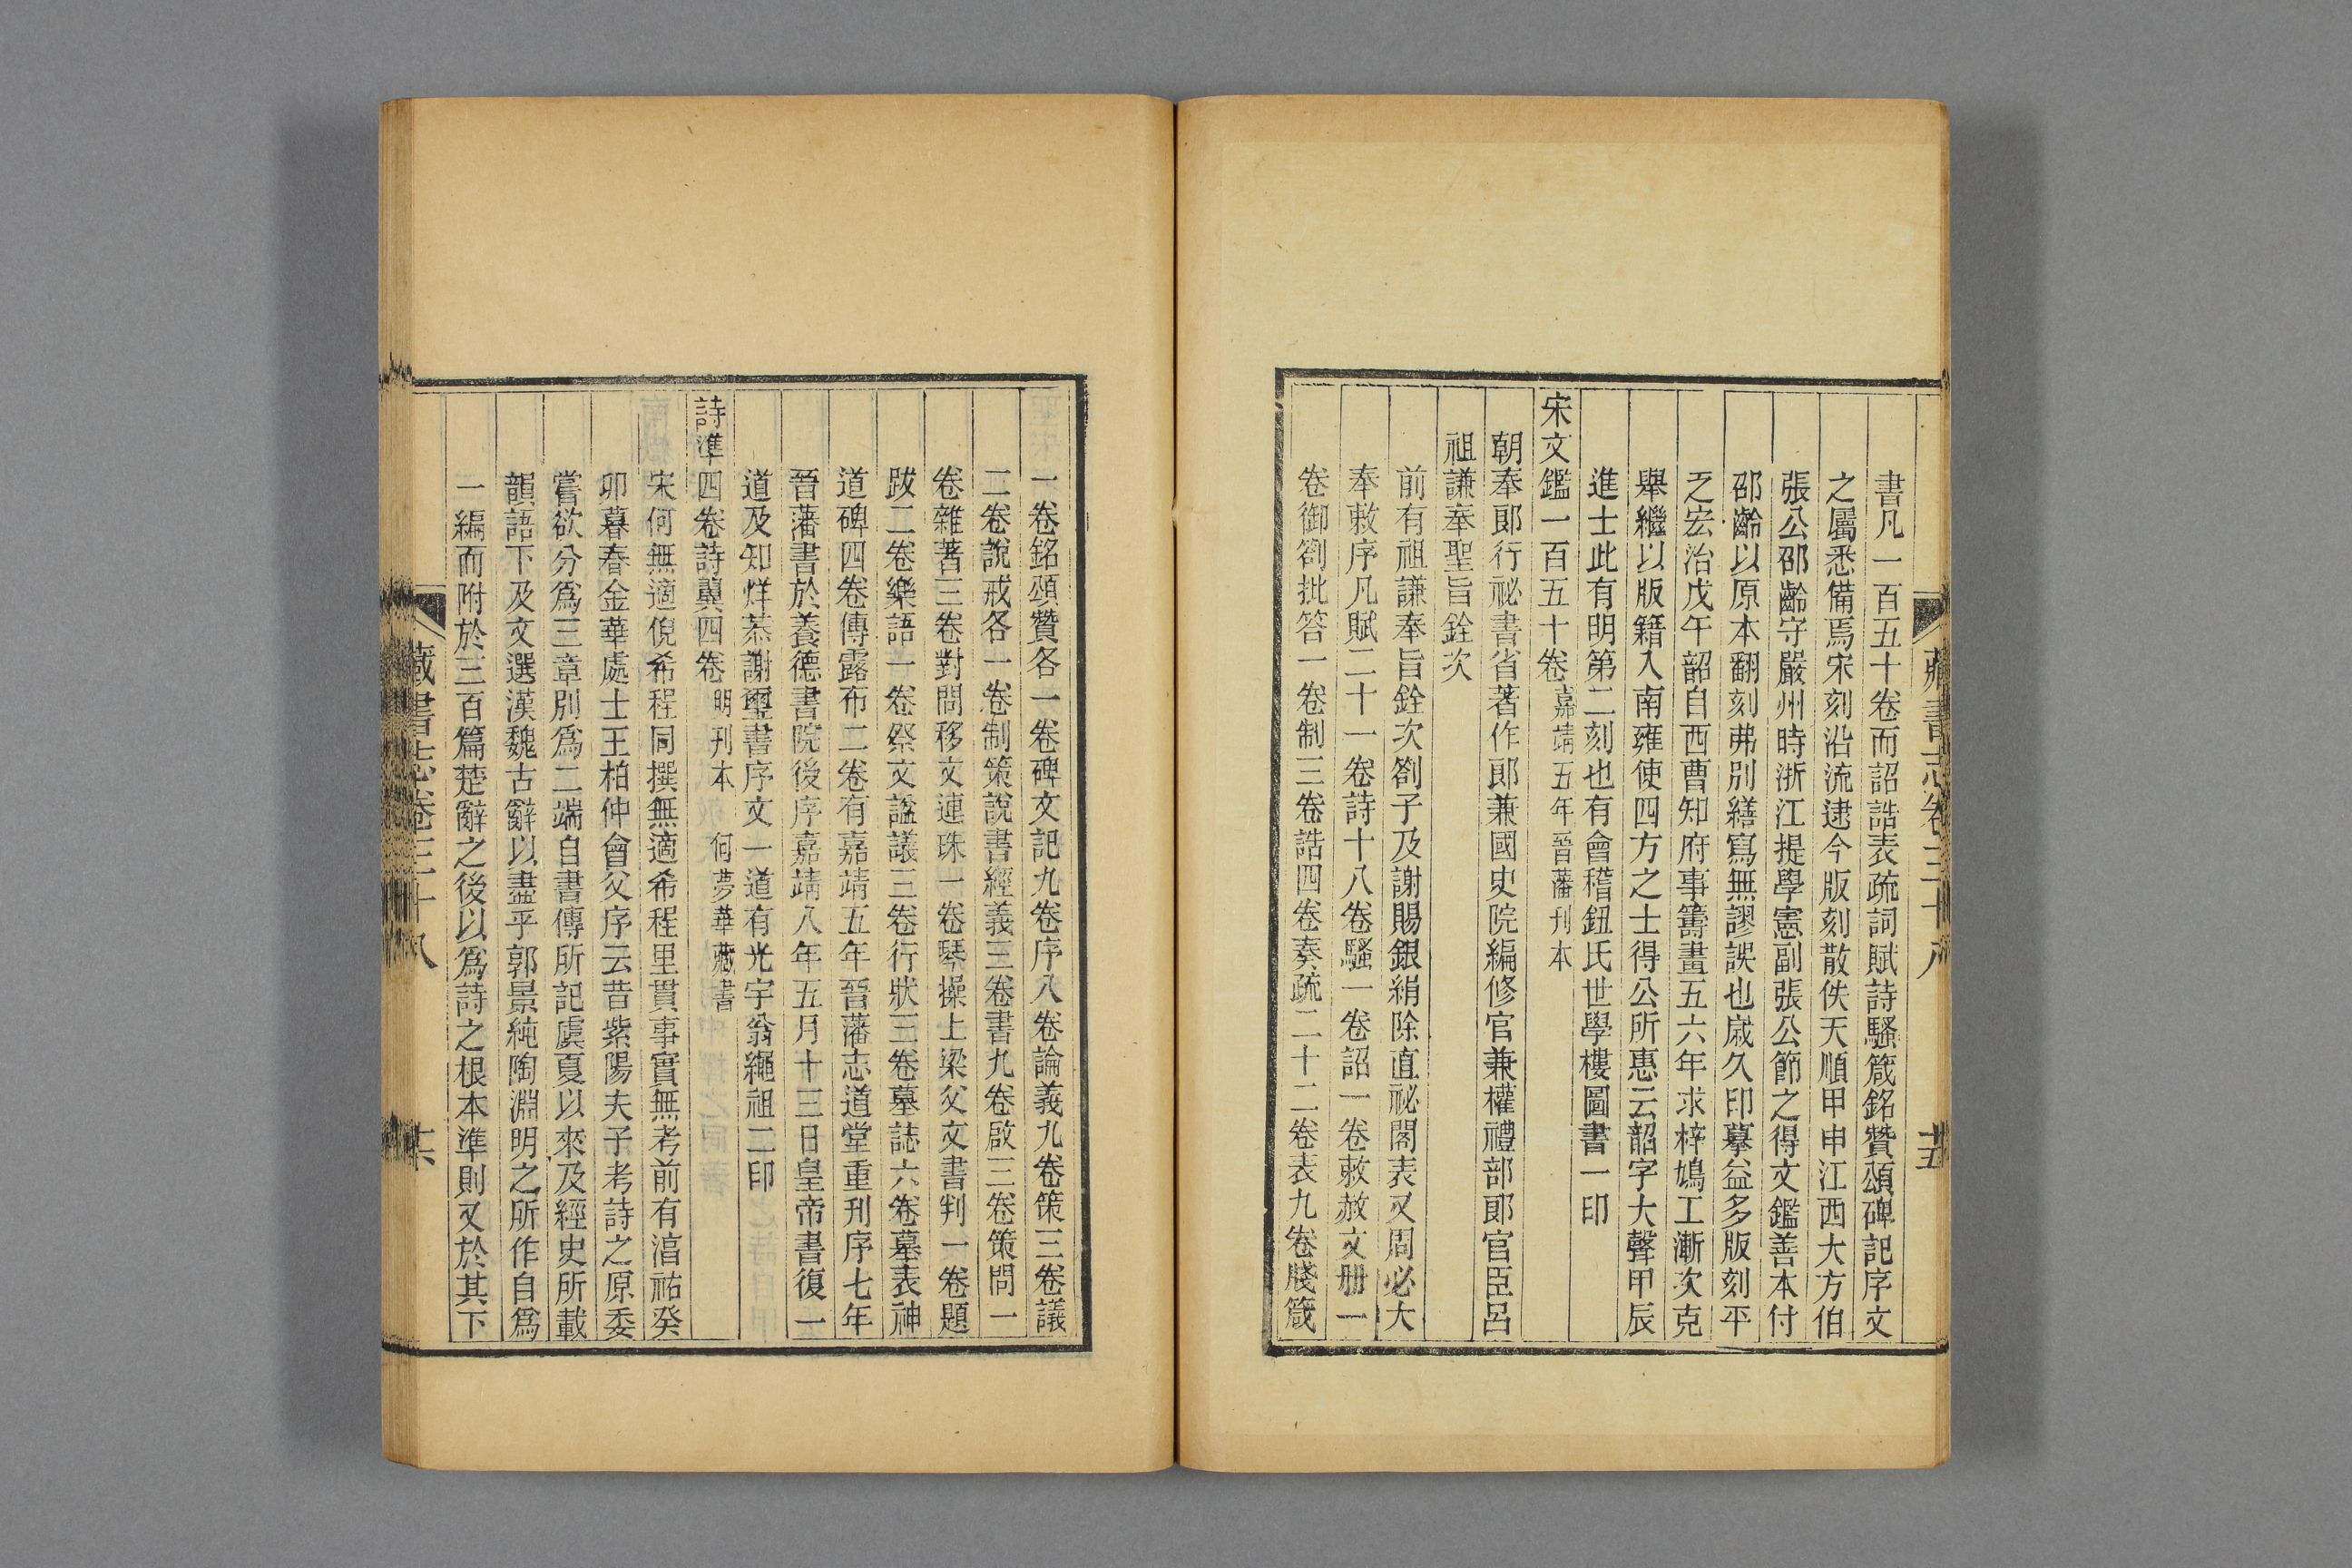 書凡一百五十卷而詔誥表疏詞賦詩騷箴銘贊頌碑記序文
之屬悉備焉宋刻沿流逮今版刻散佚天順甲申江西大方伯
張公邵齡守嚴州時浙江提學憲副張公節之得文鑑善本付
邵齡以原本翻刻弗別繕寫無謬誤也歲久印摹益多版刻平
乏宏治戊午韶自西曹知府事籌畫五六年求梓鳩工漸次克
舉繼以版籍入南雍使四方之士得公所惠云韶字大聲甲辰
進士此有明第二刻也有會稽鈕氏世學樓圖書一印
宋文鑑一百五十卷 嘉靖五年晉藩刊本
朝奉郎行祕書省著作郎兼國史院編修官兼權禮部郎官臣呂
祖謙奉聖旨銓次
前有祖謙奉旨銓次劄子及謝賜銀絹除直祕閣表又周必大
奉敕序凡賦二十一卷詩十八卷騷一卷詔一卷敕赦文册一
卷御劄批答一卷制三卷誥四卷奏疏二十二卷表九卷牋箴
藏書志卷三十八 十五
一卷銘頌贊各一卷碑文記九卷序八卷論義九卷策三卷議
二卷說戒各一卷制策說書經義三卷書九卷啟三卷策問一
卷雜著三卷對問移文連珠一卷琴操上梁文書判一卷題
跋二卷樂語一卷祭文謚議三卷行狀三卷墓誌六卷墓表神
道碑四卷傳露布二卷有嘉靖五年晉藩志道堂重刊序七年
晉藩書於養德書院後序嘉靖八年五月十三日皇帝書復一
道及知烊恭謝璽書序文一道有光宇翁繩祖二印
詩準四卷詩翼四卷 明刊本 何夢華藏書
宋何無適倪希程同撰無適希程里貫事實無考前有淯祐癸
卯暮春金華處士王柏仲會父序云昔紫陽夫子考詩之原委
嘗欲分爲三章別爲二端自書傳所記虞夏以來及經史所載
韻語下及文選漢魏古辭以盡乎郭景純陶淵明之所作自爲
一編而附於三百篇楚辭之後以爲詩之根本準則又於其下
藏書志卷三十八 十六